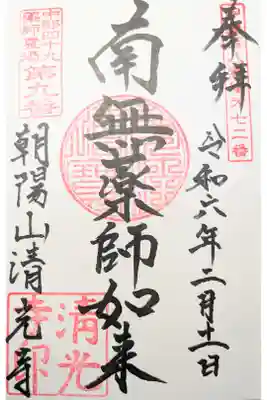 奉拝
令和六年二月十一日
南無薬師如来
朝陽山清光寺
中部四十九
薬師霊場
第九番
七二番
清光
寺印